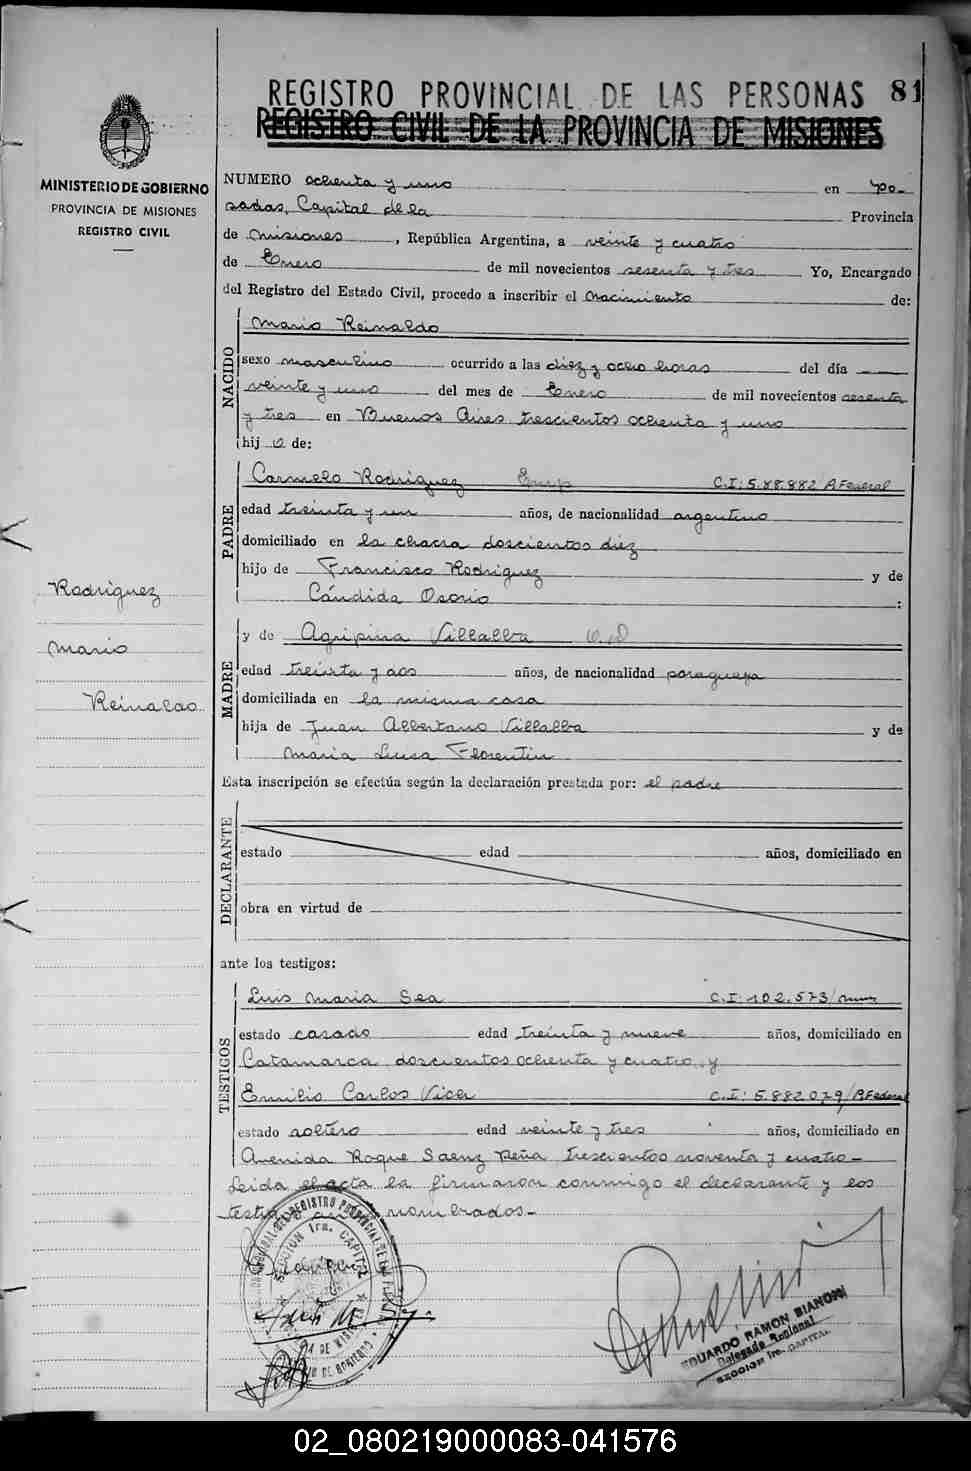 REGISTRO PROVINCIAL DE LAS PERSONAS 81
REGISTRO CIVIL DE LA PROVINCIA DE MISIONES
MINISTERIO DE GOBIERNO
PROVINCIA DE MISIONES
REGISTRO CIVIL
NUMERO ochenta y uno en Po-
sadas, Capital de la Provincia
de Misiones, República Argentina, a veinte y cuatro
de Enero de mil novecientos sesenta y tres Yo, Encargado
del Registro del Estado Civil, procedo a inscribir el nacimiento de:
NACIDO
Mario Reinaldo
sexo masculino ocurrido a las diez y ocho horas del día
veinte y uno del mes de Enero de mil novecientos sesenta
y tres en Buenos Aires trescientos ochenta y uno
hijo de:
PADRE
Carmelo Rodriguez Emp C.I: 5.88.882 P.Federal
edad treinta y un años, de nacionalidad argentino
domiciliado en la chacra doscientos diez
hijo de Francisco Rodriguez y de
Cándida Osorio :
MADRE
y de Agripina Villalba
edad treinta y dos años, de nacionalidad paraguaya
domiciliada en la misma casa
hija de Juan Albertano Villalba y de
Maria Luisa Florentin
Esta inscripción se efectúa según la declaración prestada por: el padre
DECLARANTE
estado edad años, domiciliado en
obra en virtud de
ante los testigos:
TESTIGOS
Luis Maria Sea C.I: 102.573/
estado casado edad treinta y nueve años, domiciliado en
Catamarca doscientos ochenta y cuatro y
Emilio Carlos C.I: 5.882.079/P.Federal
estado soltero edad veinte y tres años, domiciliado en
Avenida Roque Saenz Peña trescientos noventa y cuatro-
Leida el acta la firmaron conmigo el declarante y los
nombrados.-
Rodriguez
Mario
Reinaldo
SECCION 1ra. CAPITAL
EDUARDO RAMON BIANCHI
Delegado Regional
SECCION 1ra. CAPITAL
02_080219000083-041576